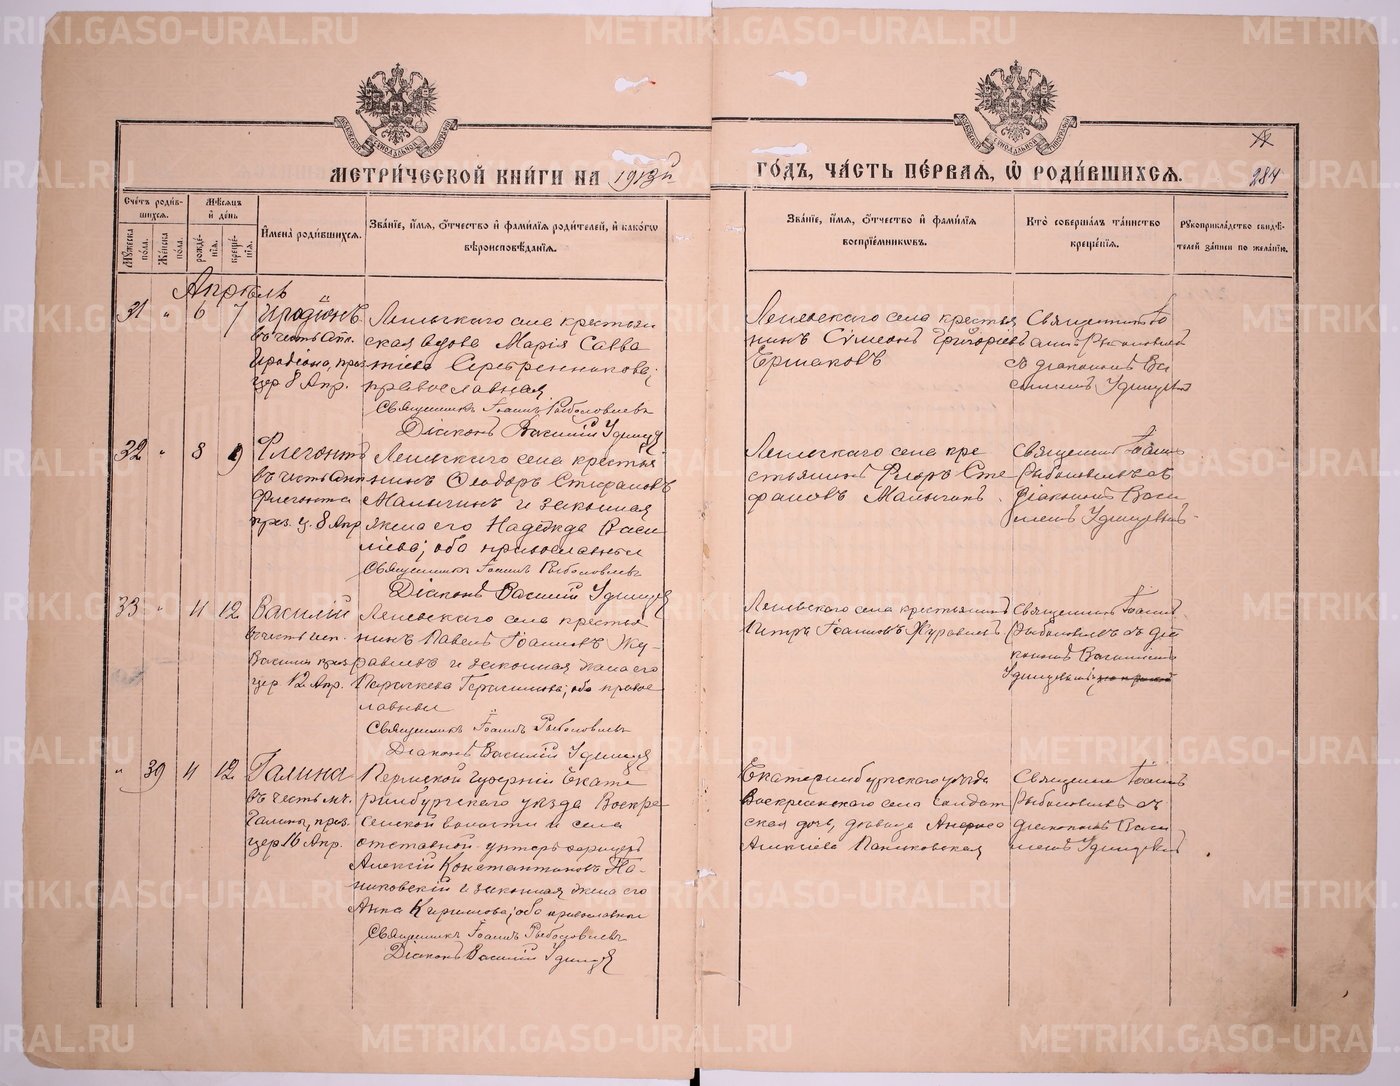 METRIKI.GASO-URAL.RU
МЕТРИ́ЧЕСКОЙ КНИ́ГИ НА 1913й
ГО́ДЪ, ЧА́СТЬ ПЕ́РВАѦ, Ѡ РОДИ́ВШИХСѦ.
284
Сче́тъ роди́в-
шихсѧ.
Му́жеска по́ла.
Же́нска по́ла.
Мѣ́сѧцъ и де́нь
рожде́-
нїѧ.
креще́-
нїѧ.
Имена̀ роди́вшихсѧ.
Зва́нїе, и́мѧ, о́тчество и фами́лїѧ роди́телей, и како́гѡ
вѣроисповѣ́данїѧ.
Зва́нїе, и́мѧ, о́тчество и фами́лїѧ
воспрїе́мникѡвъ.
Кто̀ соверша́лъ та́инство
креще́нїѧ.
Рꙋкоприкла́дство свидѣ́-
телей за́писи по жела́нїю.
Апрѣль
31 " 6 7
Иродіонъ
въ честь Ап.
Иродіона, праз.
цер 8 Апр.
села крестьян
ская вдова Марія Савва
тіева Серебренникова,
православная
Священникъ Іоаннъ Рыболовлевъ
Діаконъ Василій Удинцев
села крестья
нинъ Сѵмеонъ Григоріевъ
Ермаковъ
Священникъ Іо
аннъ Рыболовлевъ
съ діакономъ Ва
силіемъ Удинцевымъ
32 " 8 9
Флегонтъ
въ честь
Флегонта
праз. ц. 8 Апр
села крестья
нинъ Ѳеодоръ Стефановъ
Малыгинъ и законная
жена его Надежда Васи
ліева; оба православные
Священникъ Іоаннъ Рыболовлевъ
Діаконъ Василій Удинцев
села кре
стьянинъ Флоръ Сте
фановъ Малыгинъ
Священникъ Іоаннъ
Рыболовлевъ съ
діакономъ Васи
ліемъ Удинцевымъ
33 " 11 12
Василій
въ честь исп.
Василія праз
цер 12 Апр.
села крестья
нинъ Павелъ Іоанновъ Жу-
равлевъ и законная жена его
Параскева Герасимова; оба право
славные
Священникъ Іоаннъ Рыболовлевъ
Діаконъ Василій Удинцев
села крестьянинъ
Петръ Іоанновъ Журавлевъ
Священникъ Іоаннъ
Рыболовлевъ съ діа
кономъ Василіемъ
Удинцевымъ
" 39 11 12
Галина
въ честь мч.
Галины, праз.
цер 16 Апр.
Пермской губерніи Екате
ринбургского уѣзда Воскре
сенской волости и села
отставной унтеръ офицеръ
Алексій Константиновъ Па-
никовскій и законная жена его
Анна Кирилова; оба православные
Священникъ Іоаннъ Рыболовлевъ
Діаконъ Василій Удинцев
Екатеринбургского уѣзда
Воскресенского села солдат
ская дочь, дѣвица Анфиса
Алексіева Паниковская
Священникъ Іоаннъ
Рыболовлевъ съ
діакономъ Васи
ліемъ Удинцевымъ